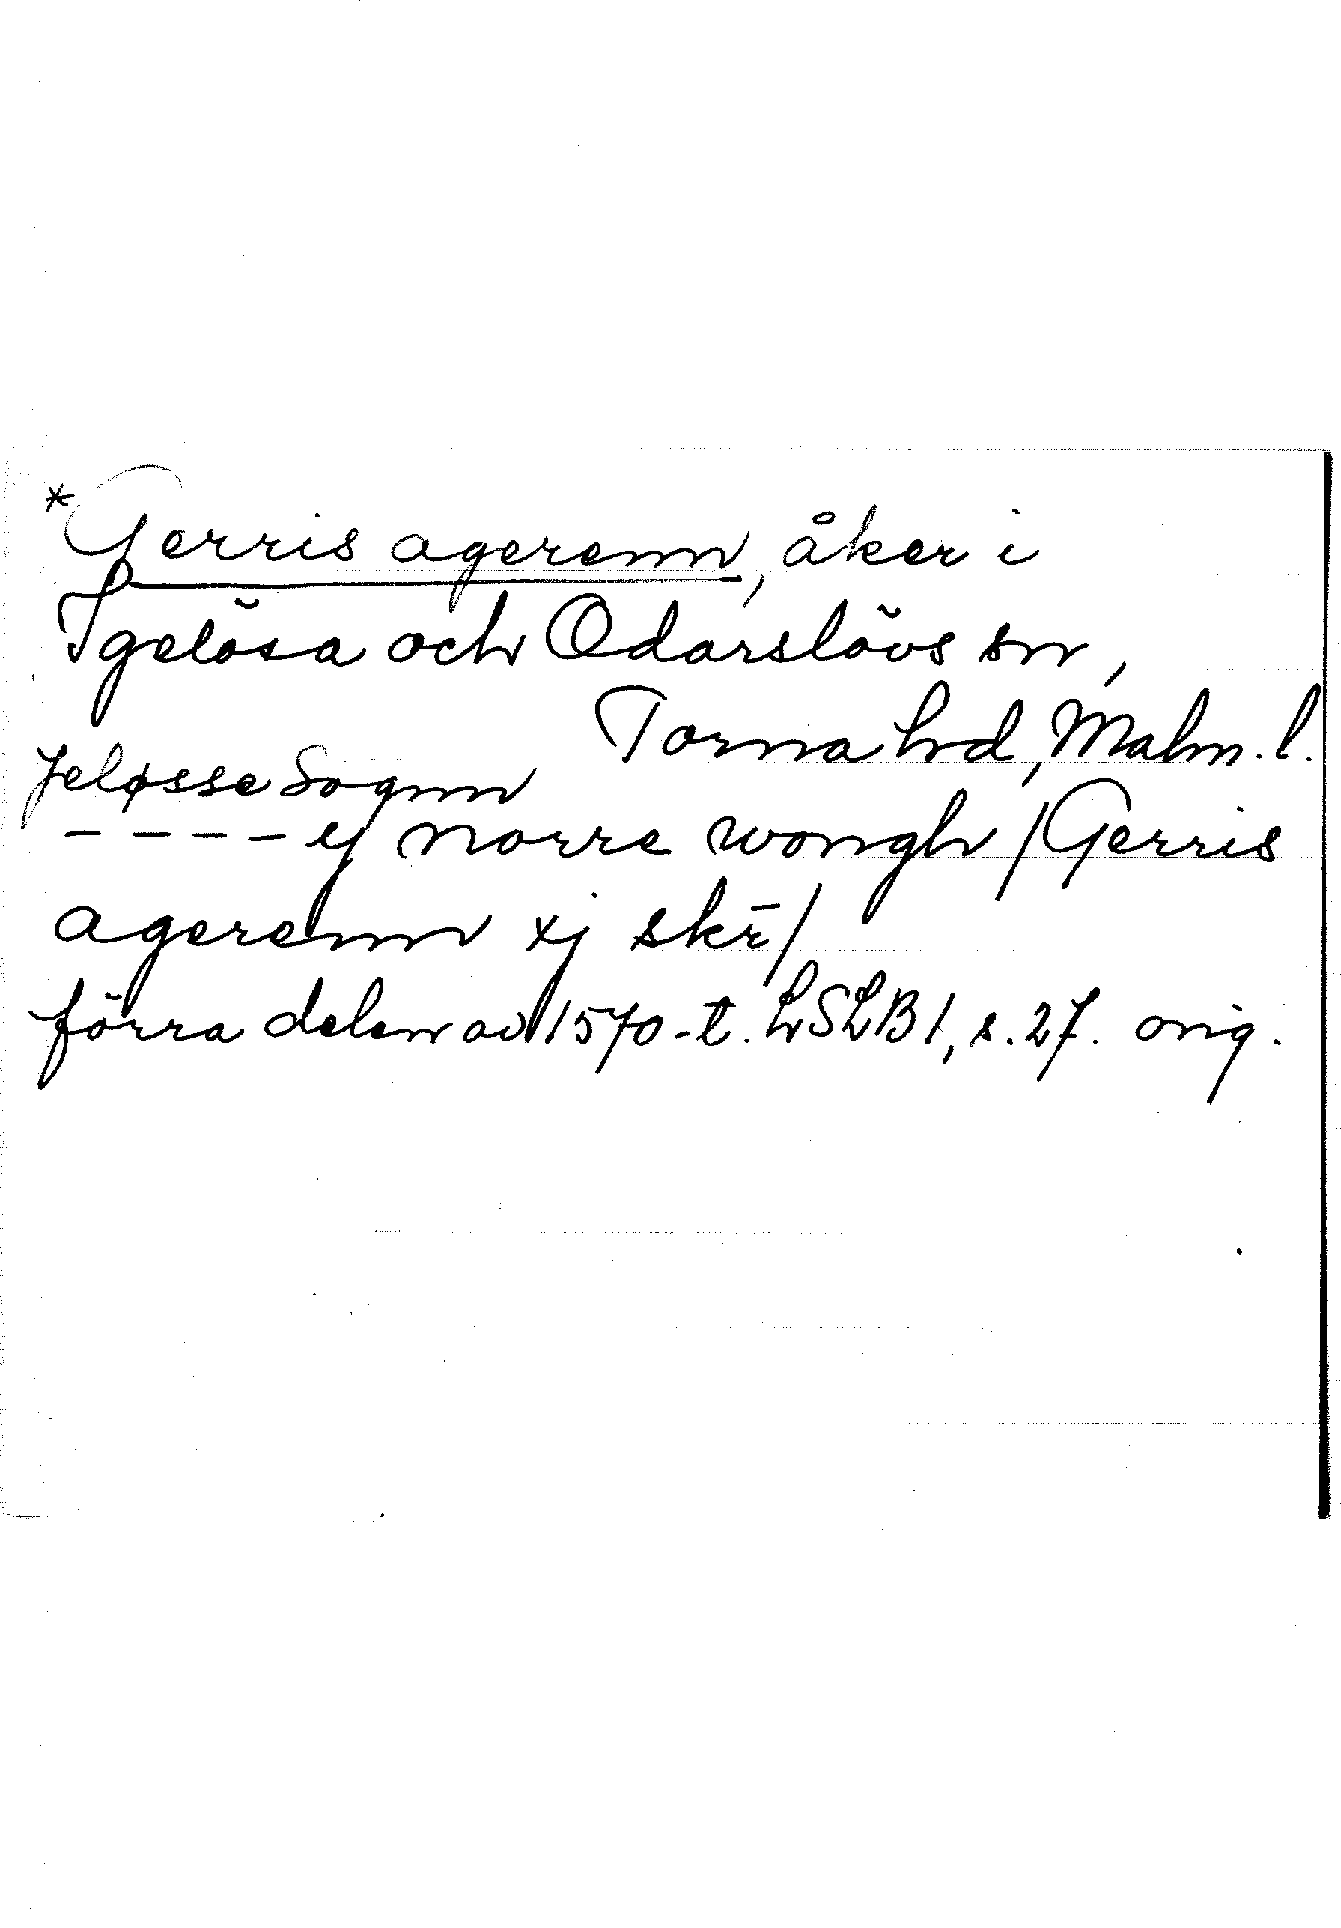 *Gerris agerenn, åker i
Igelösa och Odarslövs sn,
Torna hd, Malm. l.
Jeløsse Sognn
- - - - ij norre wongh / Gerris
agerenn xj skr̄ /
förra delen av 1570-t. LSLB 1, s. 27. orig.